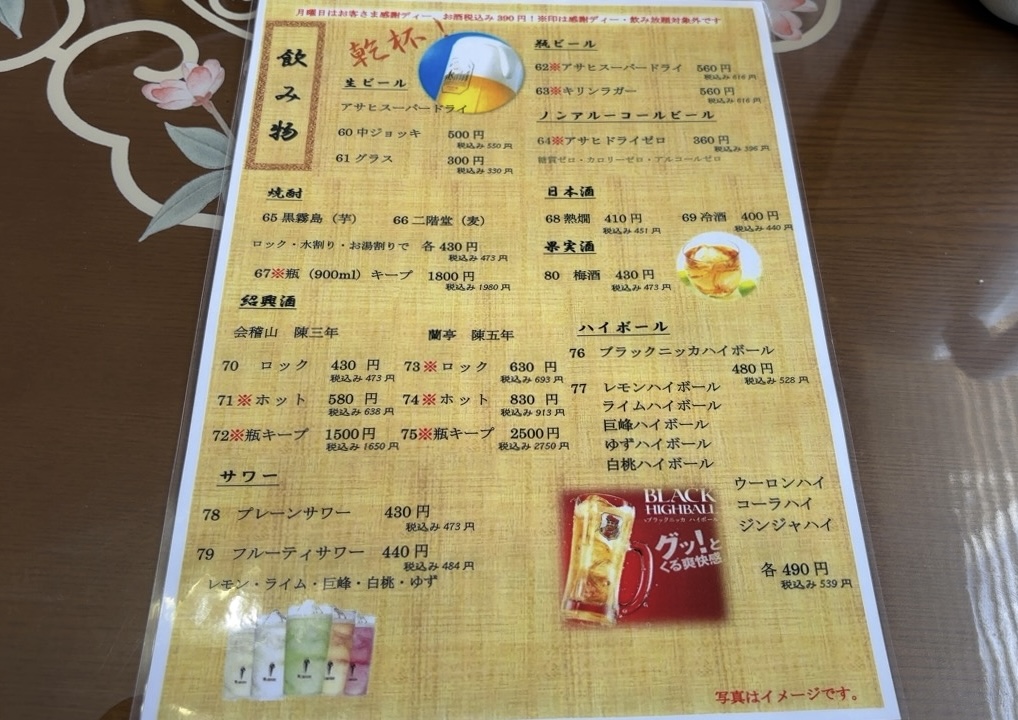 月曜日はお客さま感謝ディー、お酒税込み390円！※印は感謝ディー・飲み放題対象外です
飲み物
乾杯！
生ビール
アサヒスーパードライ
60 中ジョッキ 500円
税込み 550円
61 グラス 300円
税込み 330円
瓶ビール
62※アサヒスーパードライ 560円
税込み 616円
63※キリンラガー 560円
税込み 616円
ノンアルーコールビール
64※アサヒドライゼロ 360円
税込み 396円
糖質ゼロ・カロリーゼロ・アルコールゼロ
焼酎
65 黒霧島（芋） 66 二階堂（麦）
ロック・水割り・お湯割りで 各430円
税込み 473円
67※瓶（900ml）キープ 1800円
税込み 1980円
日本酒
68 熱燗 410円 69 冷酒 400円
税込み 451円 税込み 440円
果実酒
80 梅酒 430円
税込み 473円
紹興酒
会稽山 陳三年 蘭亭 陳五年
70 ロック 430円 73※ロック 630円
税込み 473円 税込み 693円
71※ホット 580円 74※ホット 830円
税込み 638円 税込み 913円
72※瓶キープ 1500円 75※瓶キープ 2500円
税込み 1650円 税込み 2750円
ハイボール
76 ブラックニッカハイボール
480円
税込み 528円
77 レモンハイボール
ライムハイボール
巨峰ハイボール
ゆずハイボール
白桃ハイボール
ウーロンハイ
コーラハイ
ジンジャハイ
各490円
税込み 539円
サワー
78 プレーンサワー 430円
税込み 473円
79 フルーティサワー 440円
税込み 484円
レモン・ライム・巨峰・白桃・ゆず
BLACK
HIGHBALL
ブラックニッカ ハイボール
グッ！と
くる爽快感
写真はイメージです。